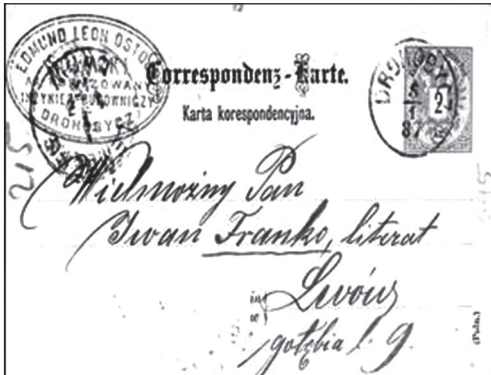 EDMUND LEON OSTOJA
DROHOBYCZ
Correspondenz-Karte.
Karta korespondencyjna.
5
1
87
2
215
Wielmożny Pan
Iwan Franko, literat
in
w
Lwów
gołębia l. 9.
(Poln.)